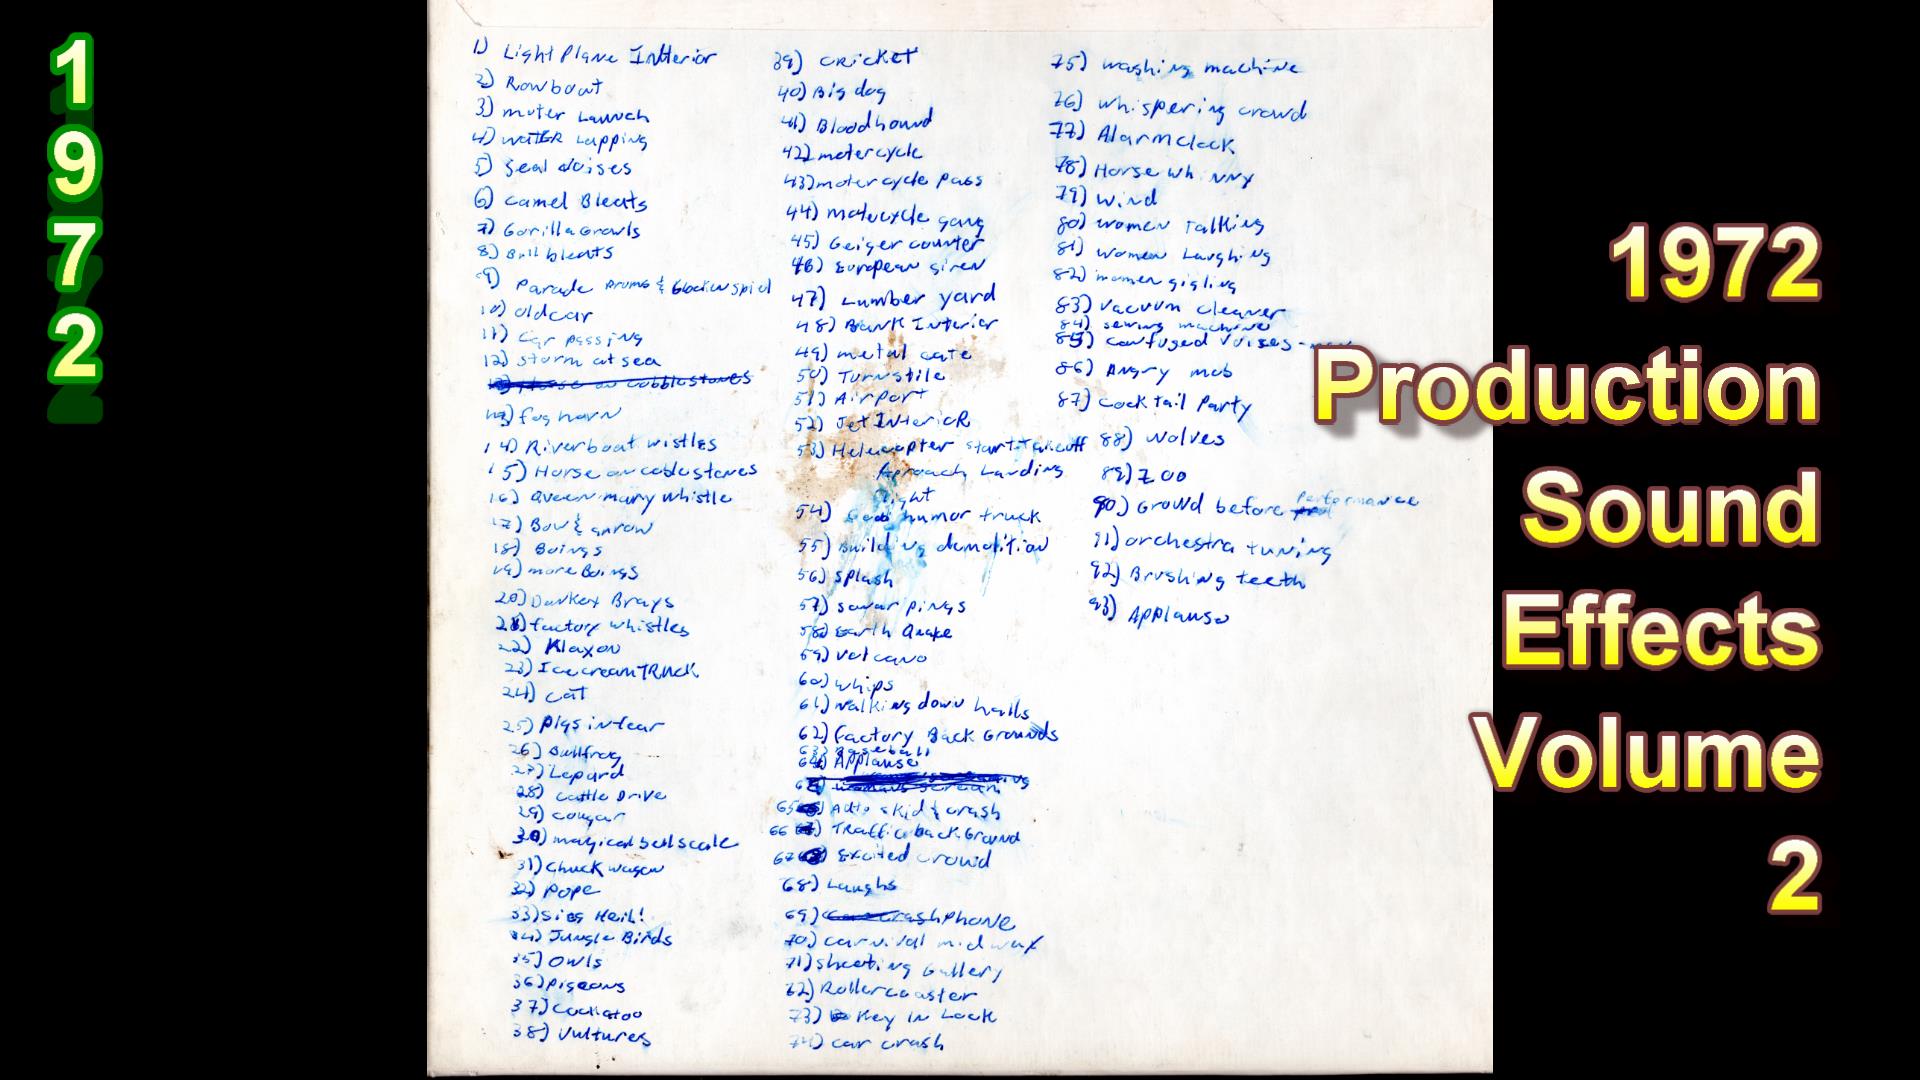 1
9
7
2
1) Light Plane Interior
2) Rowboat
3) moter Launch
4) watER Lapping
5) Seal Noises
6) Camel Bleats
7) Gorilla Growls
8) Bull bleats
9) Parade Drums & Glockenspiel
10) oldcar
11) Car passing
12) storm at sea
13) Horse on cobblestones
13) foghorn
14) Riverboat wistles
15) Horse on coblestones
16) Queen mary whistle
17) Bow & arrow
18) Boings
19) more Boings
20) Donkey Brays
21) factory whistles
22) Klaxon
23) IcecreamTRUCK
24) Cat
25) Pigs in fear
26) Bullfrog
27) Lepard
28) Cattle Drive
29) cougar
30) magical bell scale
31) Chuck wagon
32) Pope
33) Sieg Heil!
34) Jungle Birds
35) Owls
36) Pigeons
37) Cockatoo
38) Vultures
39) CRicKET
40) Big dog
41) Bloodhound
42) motercycle
43) motercycle Pass
44) motucycle gang
45) Geiger counter
46) European siren
47) Lumber yard
48) Bank Interior
49) metal gate
50) Turnstile
51) Airport
52) Jet InterioR
53) Helecopter start-Takeoff
Aproach Landing
flight
54) Good humor truck
55) Building demolition
56) splash
57) sonar pings
58) Earth Quake
59) volcano
60) whips
61) walking down halls
62) factory Back Grounds
63) Baseball
64) Applause
65) Auto skid & crash
66) Traffic back Ground
67) Excited crowd
68) Laughs
69) Car crash PHONE
70) carnival midway
71) shooting Gallery
72) Rollercoaster
73) Key in Lock
74) car crash
75) washing machine
76) whispering crowd
77) Alarmclock
78) Horse whinny
79) Wind
80) women Talking
81) women Laughing
82) women gigling
83) vacuum cleaner
84) sewing machine
85) confused voises-men
86) Angry mob
87) Cocktail Party
88) Wolves
89) Zoo
90) Crowd before performance
91) orchestra tuning
92) Brushing teeth
93) Applause
1972
Production
Sound
Effects
Volume
2